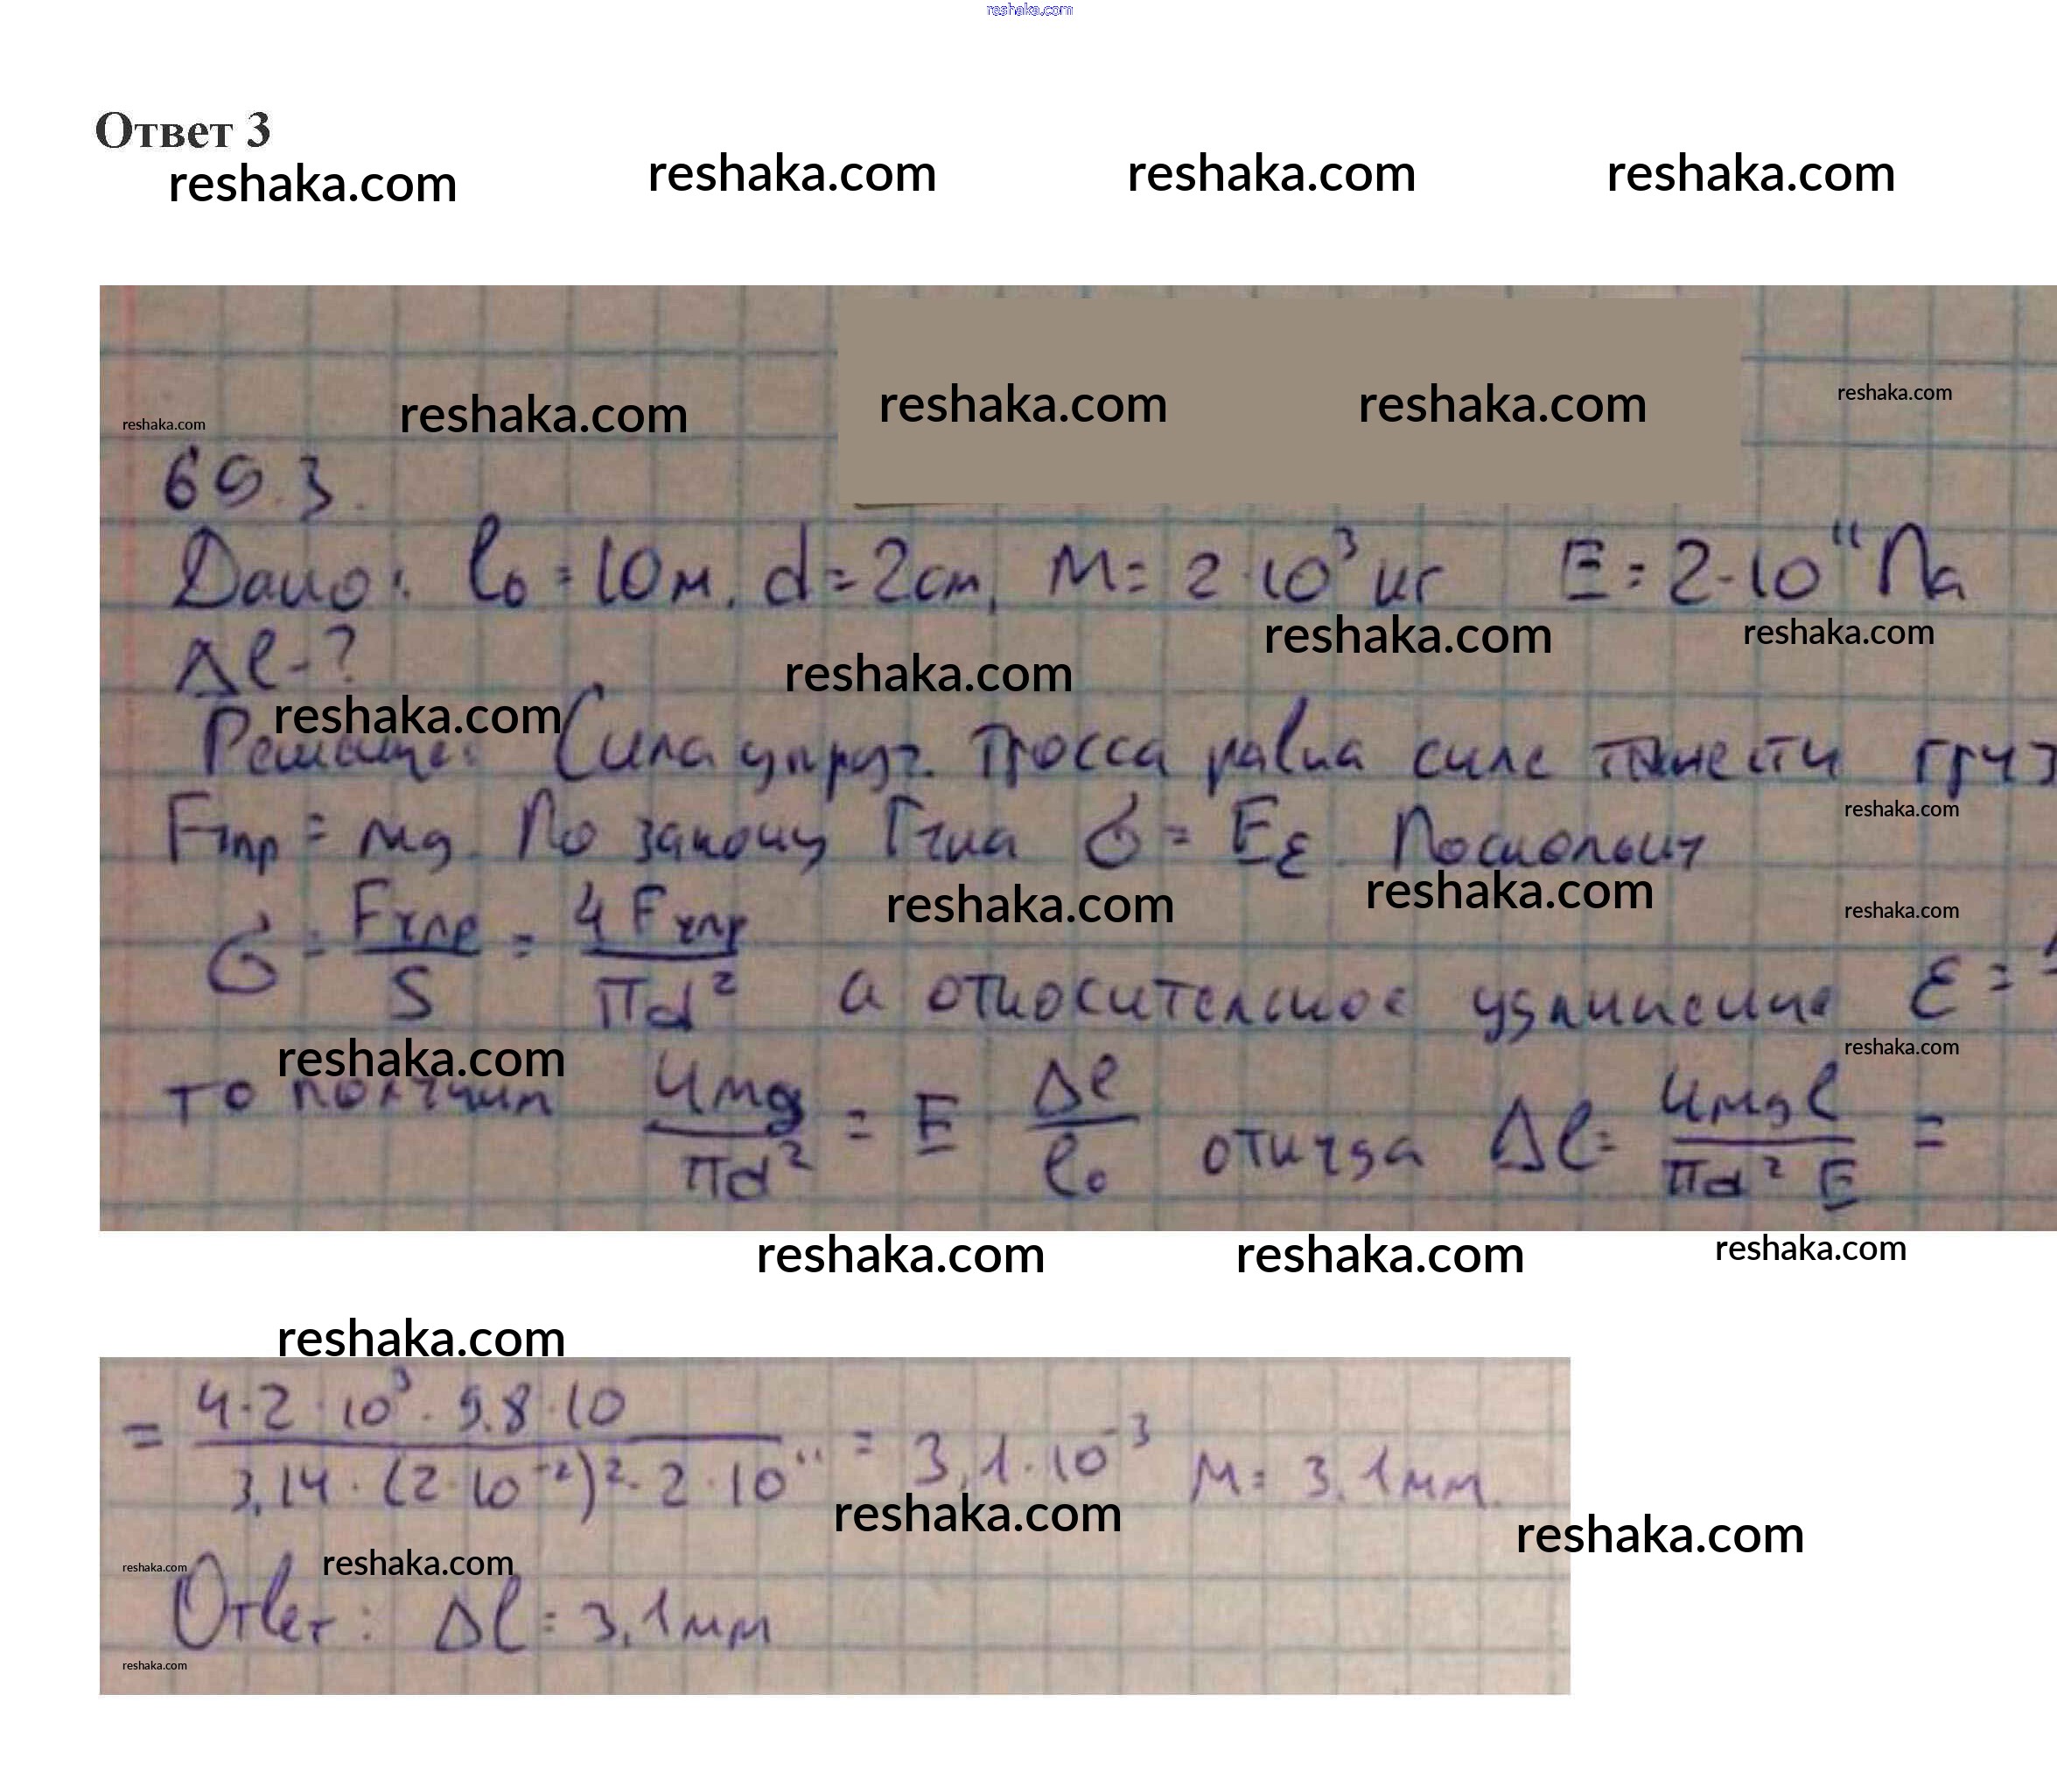 reshaka.com
Ответ 3
reshaka.com reshaka.com reshaka.com reshaka.com
reshaka.com reshaka.com reshaka.com reshaka.com reshaka.com
69.3.
Дано: l₀ = 10 м, d = 2 см, M = 2·10³ кг E = 2·10¹¹ Па
reshaka.com reshaka.com
Δl - ?
reshaka.com
reshaka.com
Решение: Сила упруг. тросса равна силе тяжести груз
reshaka.com
Fупр = mg. По закону Гука σ = Eε. Поскольку
reshaka.com reshaka.com reshaka.com
σ = Fупр / S = 4 Fупр / πd² а относительное удлинение ε =
reshaka.com reshaka.com
то получим 4mg / πd² = E Δl / l₀ откуда Δl = 4mgl / πd² E =
reshaka.com reshaka.com reshaka.com
reshaka.com
= 4·2·10³·9.8·10 / 3,14·(2·10⁻²)²·2·10¹¹ = 3,1·10⁻³ м = 3.1 мм.
reshaka.com reshaka.com
reshaka.com reshaka.com
Ответ: Δl = 3,1 мм
reshaka.com